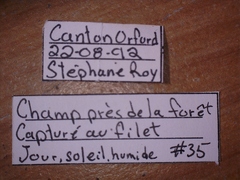 Canton Orford
22-08-92
Stéphanie Roy
Champ près de la forêt
Capturé au filet
Jour, soleil, humide #35